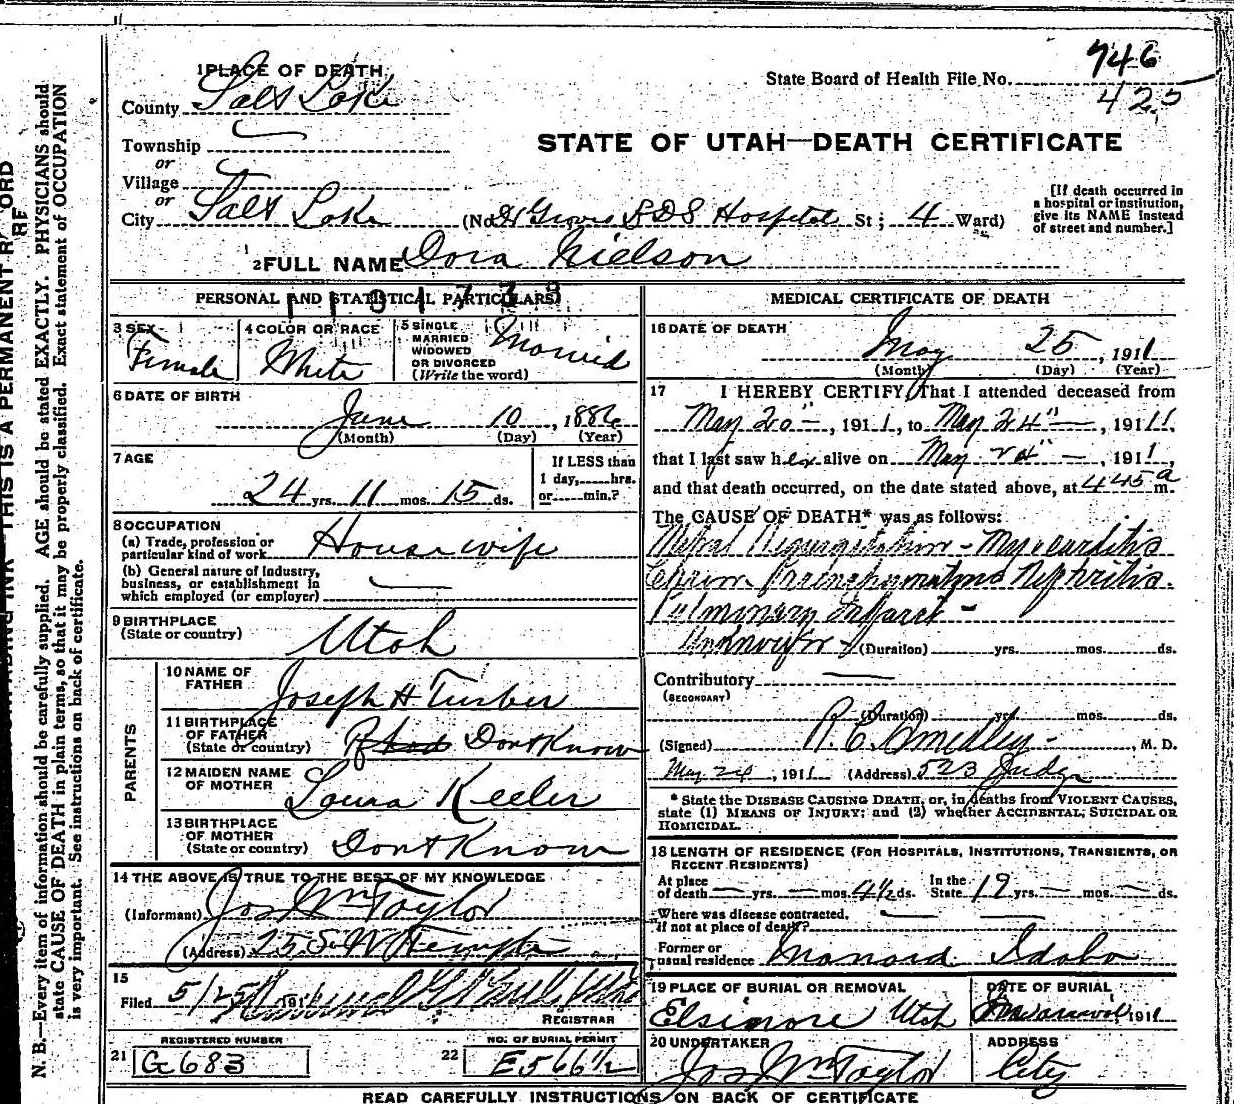 746
State Board of Health File No. 425
1 PLACE OF DEATH
County Salt Lake
STATE OF UTAH—DEATH CERTIFICATE
Township
or
Village
or
City Salt Lake (No. LDS Hospital St; 4 Ward)
[If death occurred in
a hospital or institution,
give its NAME instead
of street and number.]
2 FULL NAME Dora Nielson
PERSONAL AND STATISTICAL PARTICULARS
3 SEX
Female
4 COLOR OR RACE
White
5 SINGLE
MARRIED
WIDOWED
OR DIVORCED
(Write the word)
Married
6 DATE OF BIRTH
June 10, 1886
(Month) (Day) (Year)
7 AGE
24 yrs. 11 mos. 15 ds.
If LESS than
1 day,......hrs.
or......min.?
8 OCCUPATION
(a) Trade, profession or
particular kind of work Housewife
(b) General nature of Industry,
business, or establishment in
which employed (or employer)
9 BIRTHPLACE
(State or country) Utah
PARENTS
10 NAME OF
FATHER Joseph H
11 BIRTHPLACE
OF FATHER
(State or country) Dont Know
12 MAIDEN NAME
OF MOTHER Laura Keeler
13 BIRTHPLACE
OF MOTHER
(State or country) Dont Know
14 THE ABOVE IS TRUE TO THE BEST OF MY KNOWLEDGE
(Informant) Jos Wm Taylor
(Address) 25 S W Temple
15
Filed 5/25 191
REGISTRAR
REGISTERED NUMBER
21 G 683
NO. OF BURIAL PERMIT
22 E566 1/2
MEDICAL CERTIFICATE OF DEATH
16 DATE OF DEATH
May 25, 1911
(Month) (Day) (Year)
17 I HEREBY CERTIFY, That I attended deceased from
May 20", 1911, to May 24", 1911,
that I last saw her alive on May 24", 1911,
and that death occurred, on the date stated above, at 445 a m.
The CAUSE OF DEATH* was as follows:
Mitral Regurgitation - Myocarditis
Chron. Parenchymatous Nephritis.
Pulmonary Infarct -
(Duration) yrs. mos. ds.
Contributory
(SECONDARY)
(Duration) yrs. mos. ds.
(Signed) R. C. Smedley, M. D.
May 24, 1911 (Address) 523 Judge
* State the DISEASE CAUSING DEATH, or, in deaths from VIOLENT CAUSES,
state (1) MEANS OF INJURY; and (2) whether ACCIDENTAL, SUICIDAL OR
HOMICIDAL.
18 LENGTH OF RESIDENCE (FOR HOSPITALS, INSTITUTIONS, TRANSIENTS, OR
RECENT RESIDENTS)
At place
of death yrs. mos. 4½ ds.
In the
State 19 yrs. mos. ds.
Where was disease contracted,
if not at place of death?
Former or
usual residence Manard Idaho
19 PLACE OF BURIAL OR REMOVAL
Elsinore Utah
DATE OF BURIAL
1911
20 UNDERTAKER
Jos Wm Taylor
ADDRESS
City
READ CAREFULLY INSTRUCTIONS ON BACK OF CERTIFICATE
THIS IS A PERMANENT
N. B.—Every item of information should be carefully supplied. AGE should be stated EXACTLY. PHYSICIANS should
state CAUSE OF DEATH in plain terms, so that it may be properly classified. Exact statement of OCCUPATION
is very important. See instructions on back of certificate.